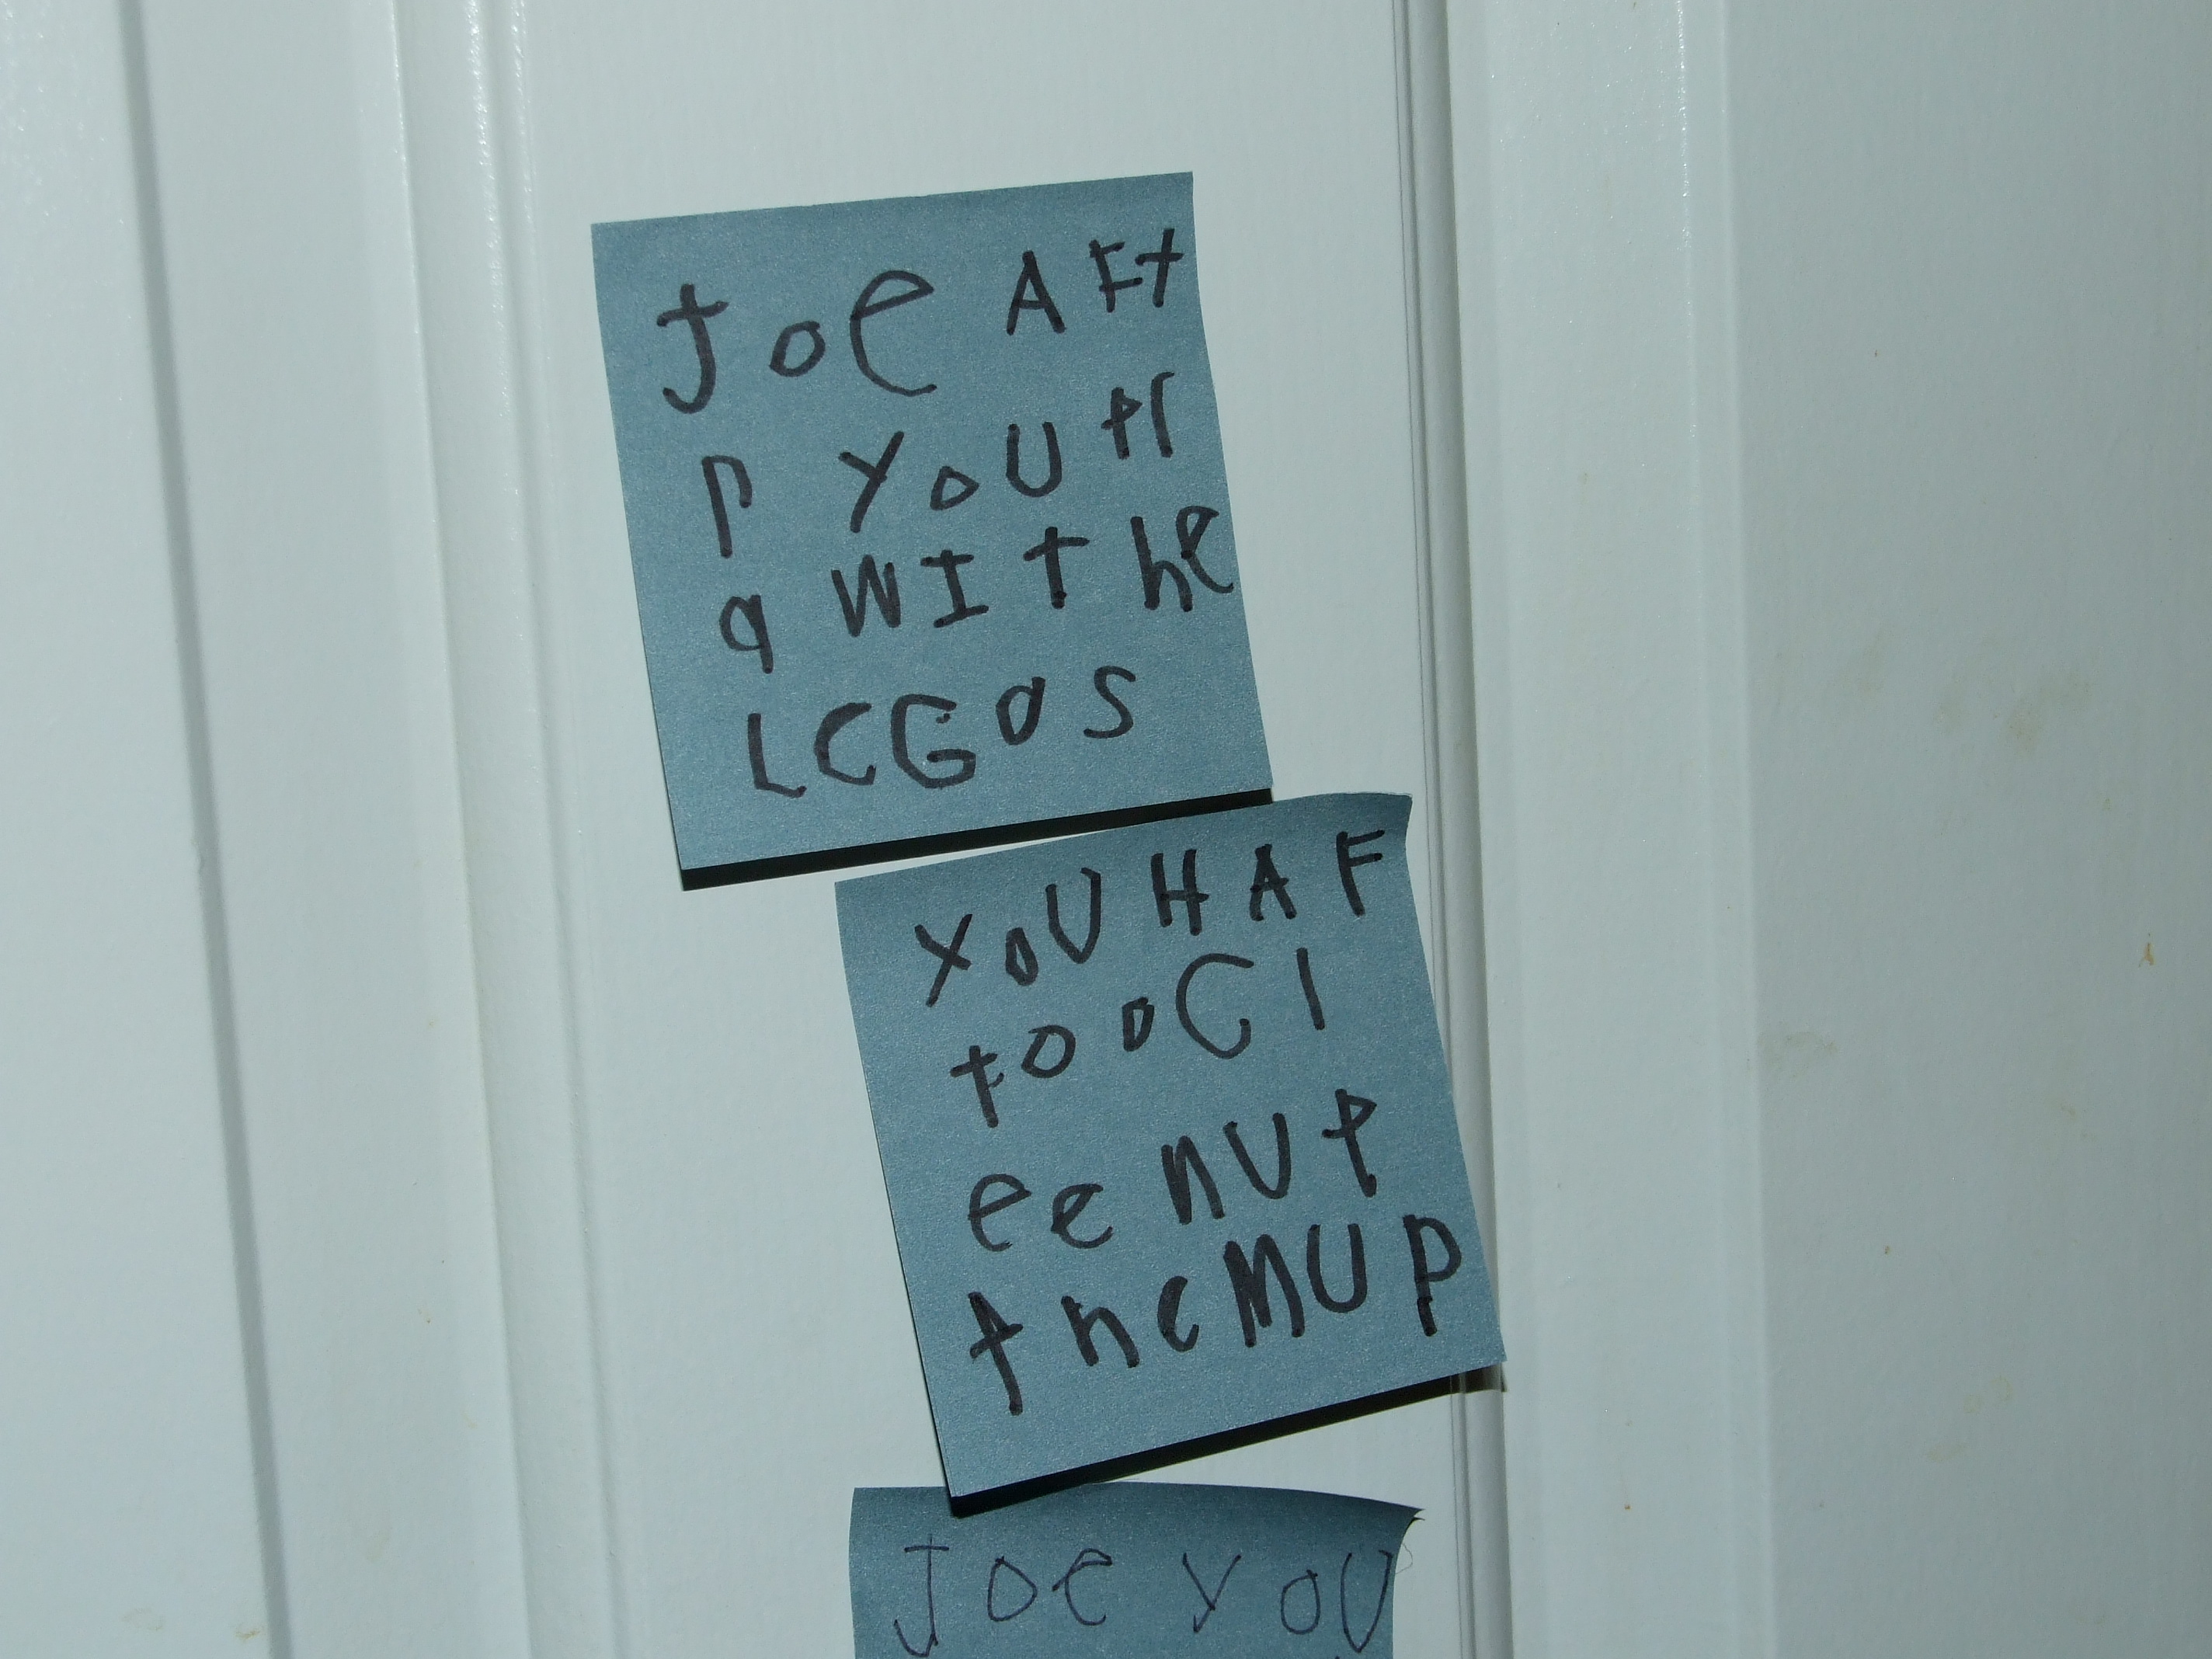 JOe AFt
P YOU Pl
a WITHe
LEGOS
YOU HAF
to oCl
ee nUP
theMUP
JOe YOU